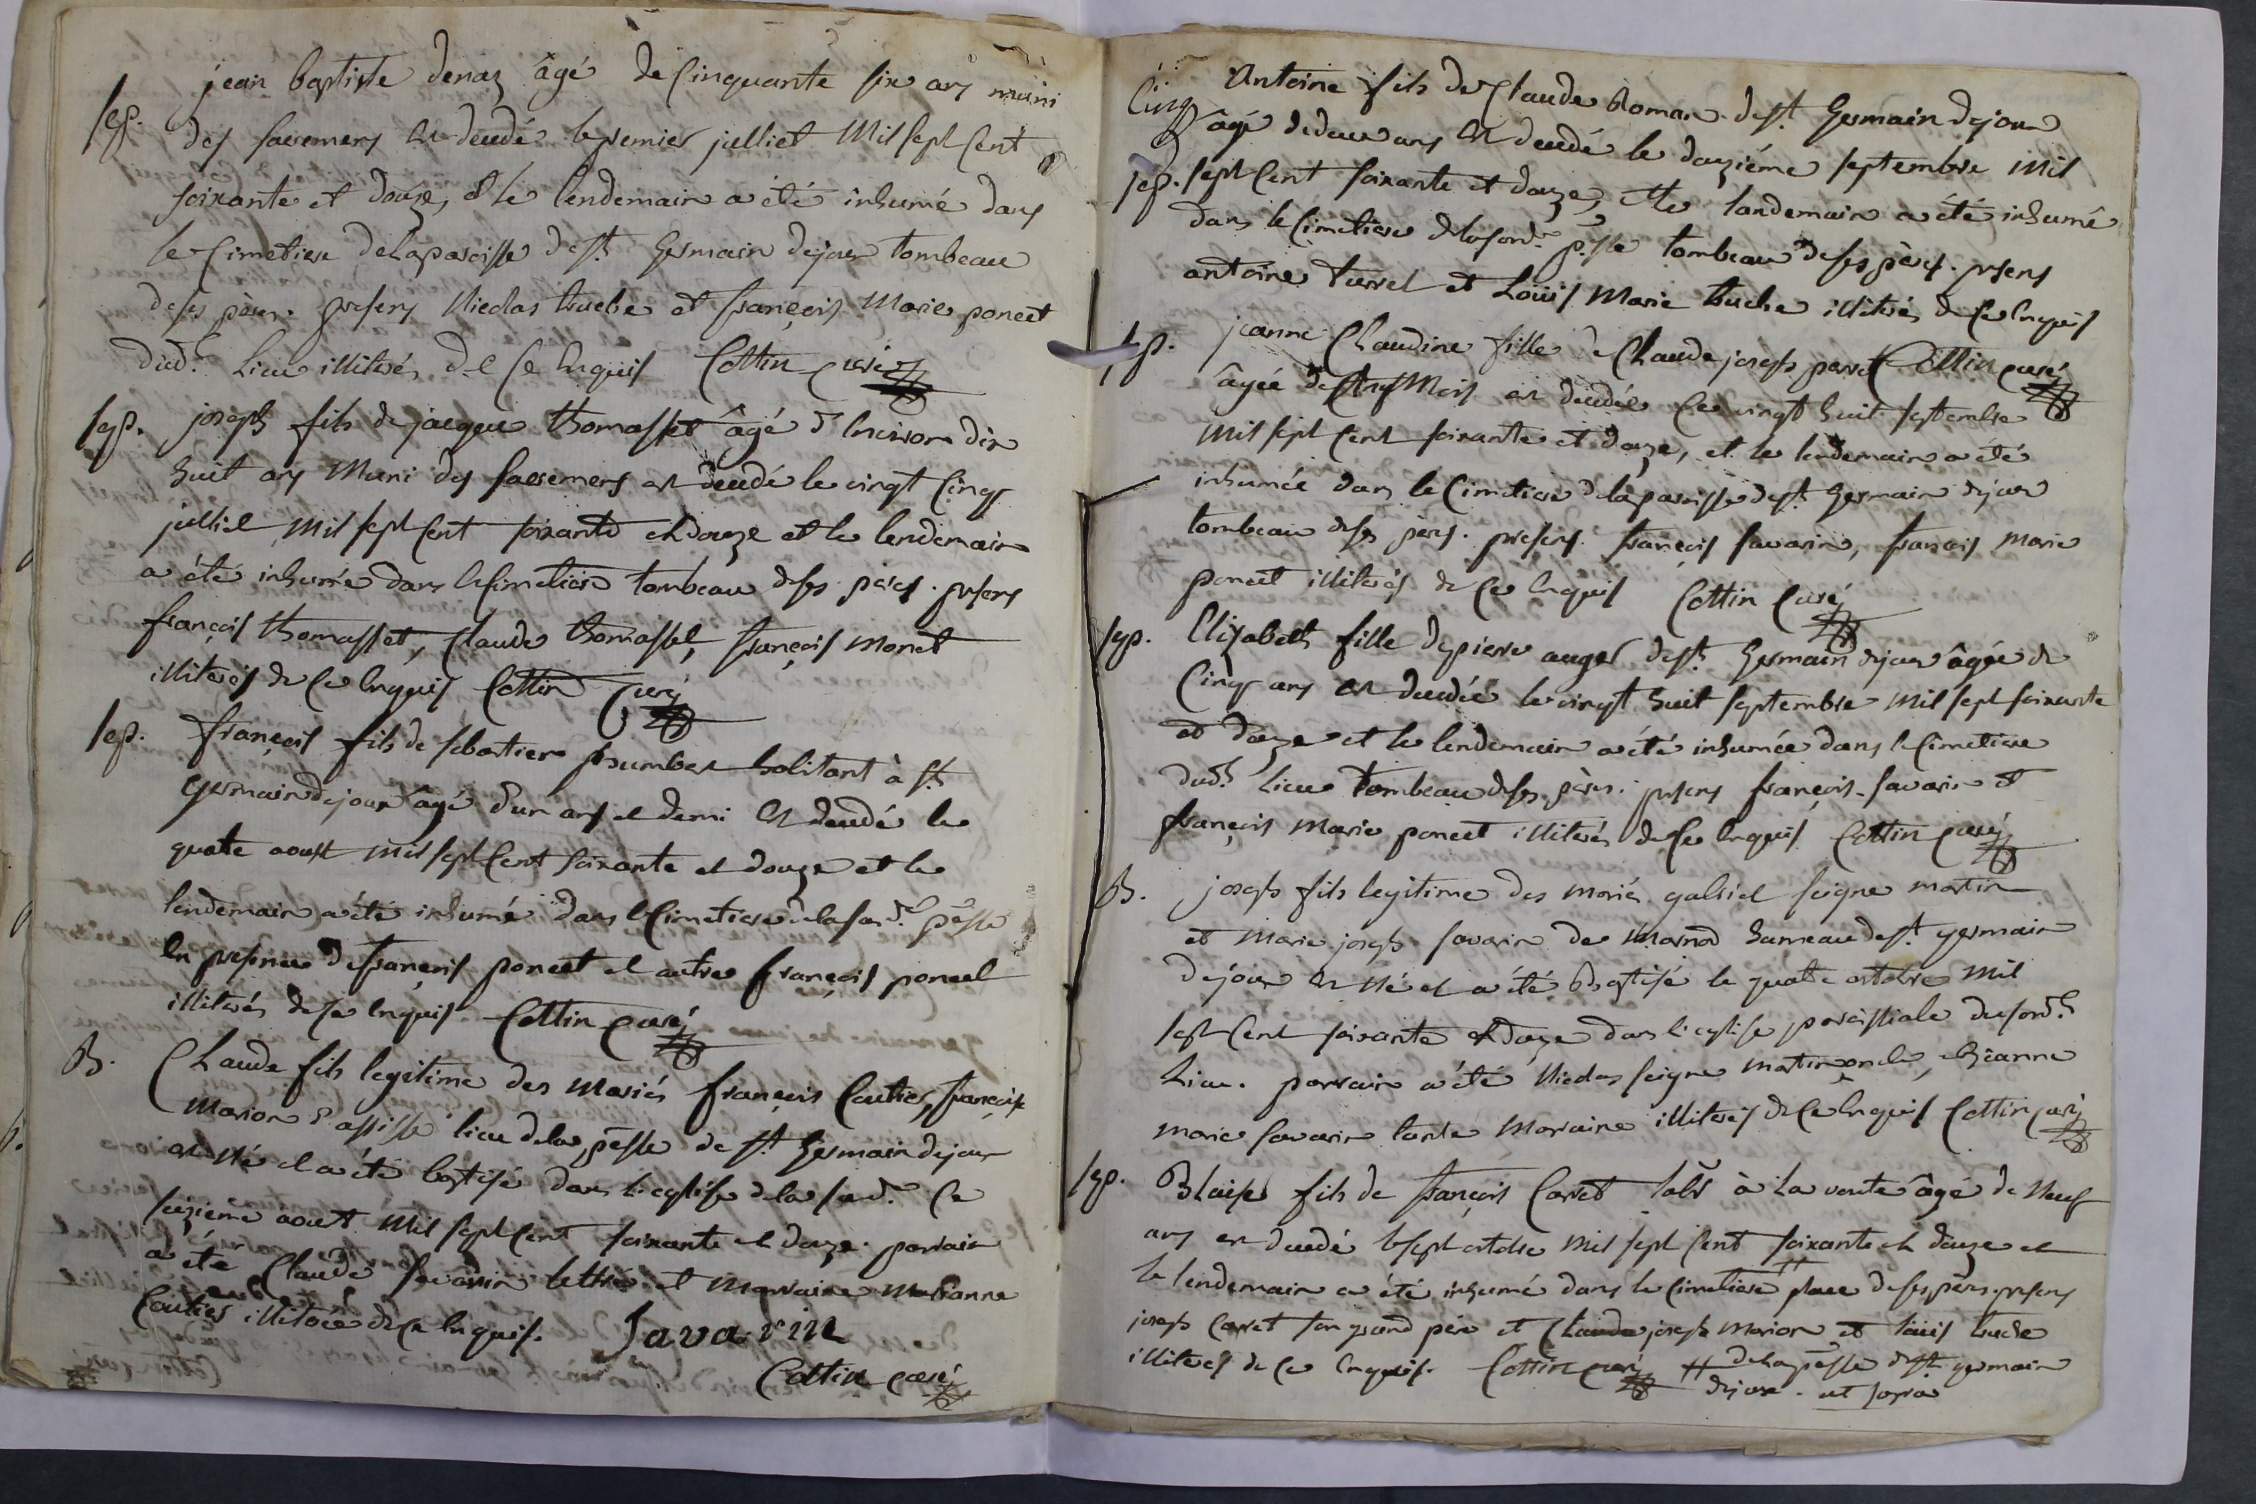 jean baptiste denaz âgé de Cinquante six ans muni
sep. des sacremens est décédé le premier julliet Mil sept Cent
soixante et douze, & le lendemain a été inhumé dans
le Cimetiere de la paroisse de st. Germain dejoux tombeau
de ses pères. presens Nicolas truche et françois Marie poncet
dud. Lieu illiterés de ce Enquis Cottin curé
sep. joseph fils de jacque thomasset âgé d'Environ dix
huit ans Muni des sacremens est décédé le vingt Cinq
julliet Mil sept Cent soixante et douze et le lendemain
a été inhumé dans le Cimetiere tombeau de ses pères. presens
françois thomasset, Claude thomasset, françois monet
illiterés de Ce Enquis Cottin Curé
sep. françois fils de sebastien habitant à st.
germain dejoux âgé d'un ans et demi Est décédé le
quatre aoust mil sept Cent soixante et douze et le
lendemain a été inhumé dans le Cimetiere de la sus d. psse
En presence de françois poncet et autre françois poncet
illiterés de ce Enquis Cottin curé
B. Claude fils legitime des Mariés françois Coutier, françoise
Marion lieu de la psse de st. Germain dejoux
est Né et a été baptisé dans l'eglise de la susd. le
seizieme aout Mil sept Cent soixante et douze. parrain
a été Claude Savarin lettré et Marraine Marianne
Coutier illiterée de ce Enquis. Savarin
Cottin curé
Cinq Antoine fils de Claude Roman de st. Germain dejoux
âgé de deux ans Est décédé le douziéme septembre Mil
sep. sept Cent soixante et douze, et le landemain a été inhumé
dans le Cimetiere de la susd. psse tombeau de ses pères. presens
antoine turrel et Loüis Marie truche illiterés de Ce Enquis
sep. jeanne Claudine fille de Claude joseph Cottin curé
âgée de Cinq Mois est décédée le vingt huit septembre
Mil sept Cent soixante et douze, et le lendemain a été
inhumée dans le Cimetiere de la paroisse de st. Germain dejoux
tombeau de ses pères. presens françois savarin, françois marie
poncet illiterés de Ce Enquis Cottin Curé
sep. Elizabeth fille de pierre auger de st. Germain dejoux âgée de
Cinq ans Est décédée le vingt huit septembre Mil sept soixante
et douze et le lendemain a été inhumée dans le Cimetiere
dud. Lieu tombeau de ses pères. presens françois savarin et
françois Marie poncet illiterés de Ce Enquis Cottin Curé
B. joseph fils legitime des mariés gabriel seigne martin
et Marie joseph savarin de Marnod hameau de st. germain
dejoux est Né et a été Baptisé le quatre octobre Mil
sept Cent soixante et douze dans l'eglise paroissiale du susd.
Lieu. parrain a été Nicolas seigne martin oncle, et jeanne
marie savarin tante Marraine illiterés de Ce Enquis Cottin Curé
sep. Blaise fils de françois Carret à La voute âgé de Neuf
ans est décédé le sept octobre Mil sept Cent soixante et douze et
le lendemain a été inhumé dans le Cimetiere # place de ses pères. presens
joseph Carret son grand père et Claude joseph Marion et loüis truche
illiterés de Ce Enquis. Cottin curé # de la psse de st. germain
dejoux. ut supra